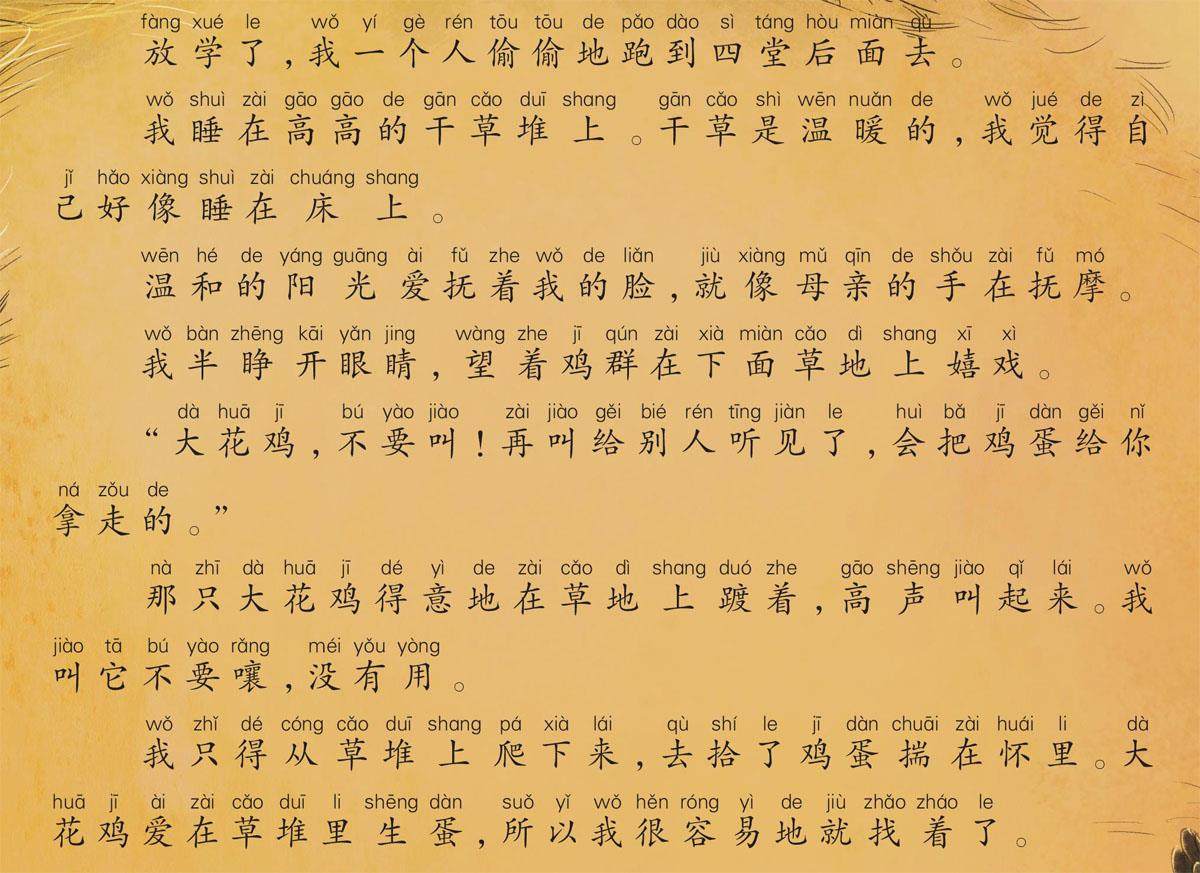 fàng xué le wǒ yí gè rén tōu tōu de pǎo dào sì táng hòu miàn qù
放学了，我一个人偷偷地跑到四堂后面去。
wǒ shuì zài gāo gāo de gān cǎo duī shang gān cǎo shì wēn nuǎn de wǒ jué de zì
我睡在高高的干草堆上。干草是温暖的，我觉得自
jǐ hǎo xiàng shuì zài chuáng shang
己好像睡在床上。
wēn hé de yáng guāng ài fǔ zhe wǒ de liǎn jiù xiàng mǔ qīn de shǒu zài fǔ mó
温和的阳光爱抚着我的脸，就像母亲的手在抚摩。
wǒ bàn zhēng kāi yǎn jing wàng zhe jī qún zài xià miàn cǎo dì shang xī xì
我半睁开眼睛，望着鸡群在下面草地上嬉戏。
dà huā jī bú yào jiào zài jiào gěi bié rén tīng jiàn le huì bǎ jī dàn gěi nǐ
“大花鸡，不要叫！再叫给别人听见了，会把鸡蛋给你
ná zǒu de
拿走的。”
nà zhī dà huā jī dé yì de zài cǎo dì shang duó zhe gāo shēng jiào qǐ lái wǒ
那只大花鸡得意地在草地上踱着，高声叫起来。我
jiào tā bú yào rǎng méi yǒu yòng
叫它不要嚷，没有用。
wǒ zhǐ dé cóng cǎo duī shang pá xià lái qù shí le jī dàn chuāi zài huái li dà
我只得从草堆上爬下来，去拾了鸡蛋揣在怀里。大
huā jī ài zài cǎo duī li shēng dàn suǒ yǐ wǒ hěn róng yì de jiù zhǎo zháo le
花鸡爱在草堆里生蛋，所以我很容易地就找着了。